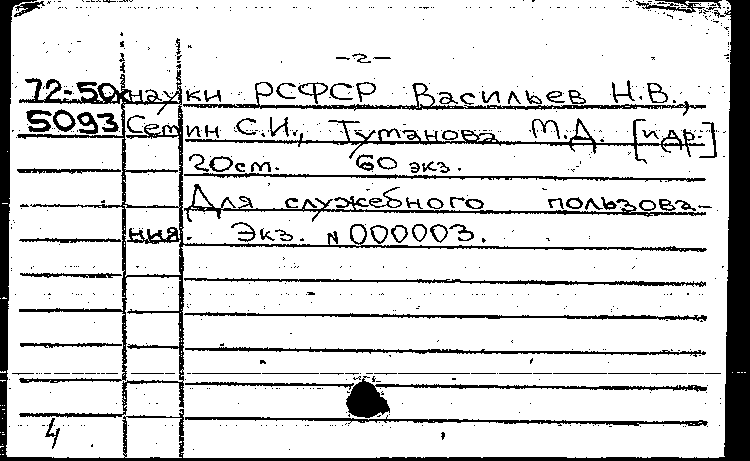 -2-
72-50к науки РСФСР Васильев Н.В.,
5093 Семин С.И., Туманова М.Д. [и др.]
20см. 60 экз.
Для служебного пользова-
ния. Экз. N 000003.
4